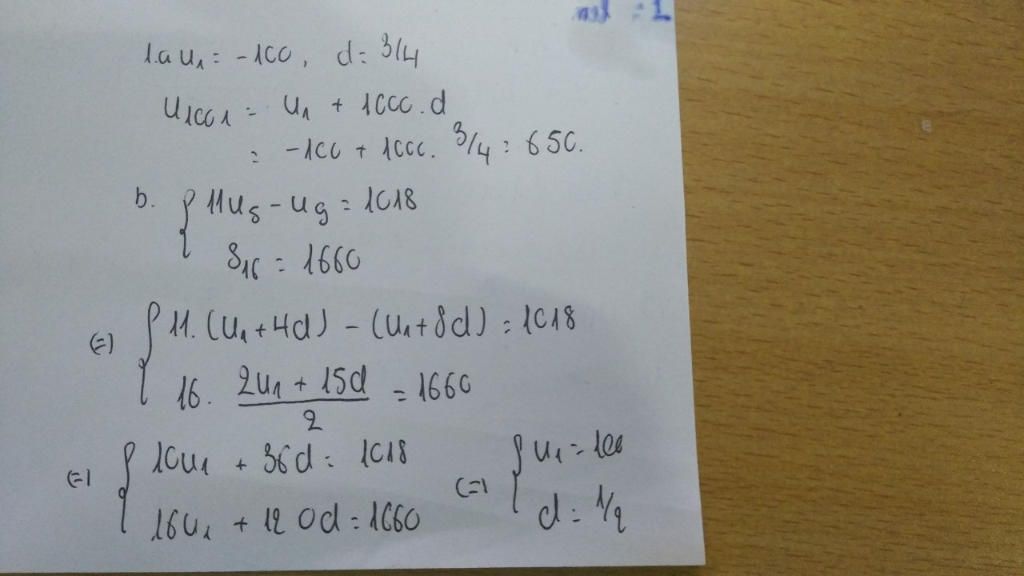 1.a u₁ = -100, d = 3/4
u₁₀₀₁ = u₁ + 1000.d
= -100 + 1000. 3/4 = 650.
b. { 11u₅ - u₉ = 1018
S₁₆ = 1660
(=) { 11.(u₁ + 4d) - (u₁ + 8d) = 1018
16. (2u₁ + 15d)/2 = 1660
(=) { 10u₁ + 36d = 1018
16u₁ + 120d = 1660
(=) { u₁ = 100
d = 1/2